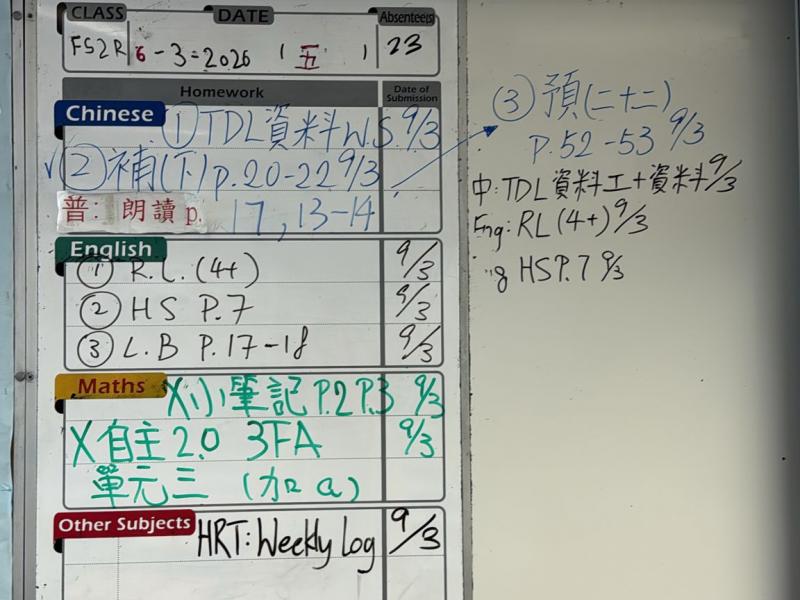 CLASS DATE Absentee(s)
FS2R 6-3-2026 (五) 23
Homework Date of Submission
Chinese ①TDL資料W.S. 9/3
✓②補(下)p.20-22 9/3
普: 朗讀 p. 17, 13-14
English
① R.L. (4+) 9/3
② HS P.7 9/3
③ L.B P.17-18 9/3
Maths X小筆記 P.2 P.3 9/3
X自主2.0 3FA 9/3
單元三 (加a)
Other Subjects HRT: Weekly Log 9/3
③ 預(二十二)
P.52-53 9/3
中: TDL 資料工+資料 9/3
Eng: RL (4+) 9/3
HS P.7 9/3